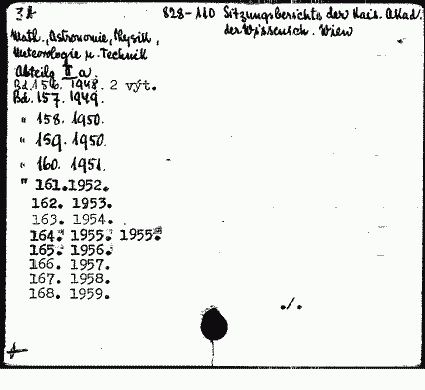 31 828-110 Sitzungsberichte der Kais. Akad.
der Wissensch. Wien
Math., Astronomie, Physik,
Meteorologie u. Technik
Abteilg II a.
Bd. 156. 1948. 2 výt.
Bd. 157. 1949.
" 158. 1950.
" 159. 1950.
" 160. 1951.
" 161. 1952.
162. 1953.
163. 1954.
164. 1955. 1955.
165. 1956.
166. 1957.
167. 1958.
168. 1959.
./.